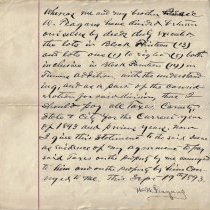 Whereas me and my brother
W. Pegany have divided between
ourselves by deeds duly executed
the lots in Block Thirteen (13)
and lots one (1) to eight (8) both
inclusive in Block Fourteen (14) in
Addition, with the understand-
ing, and as a part of the consid-
eration for so dividing, that I
should pay all taxes County,
State & City for the Current year
of 1893 and prior years, now
I give this Statement
as evidence of my agreement to pay
said taxes on the property by me conveyed
to him and on the property by him con-
veyed to me. This 1893.